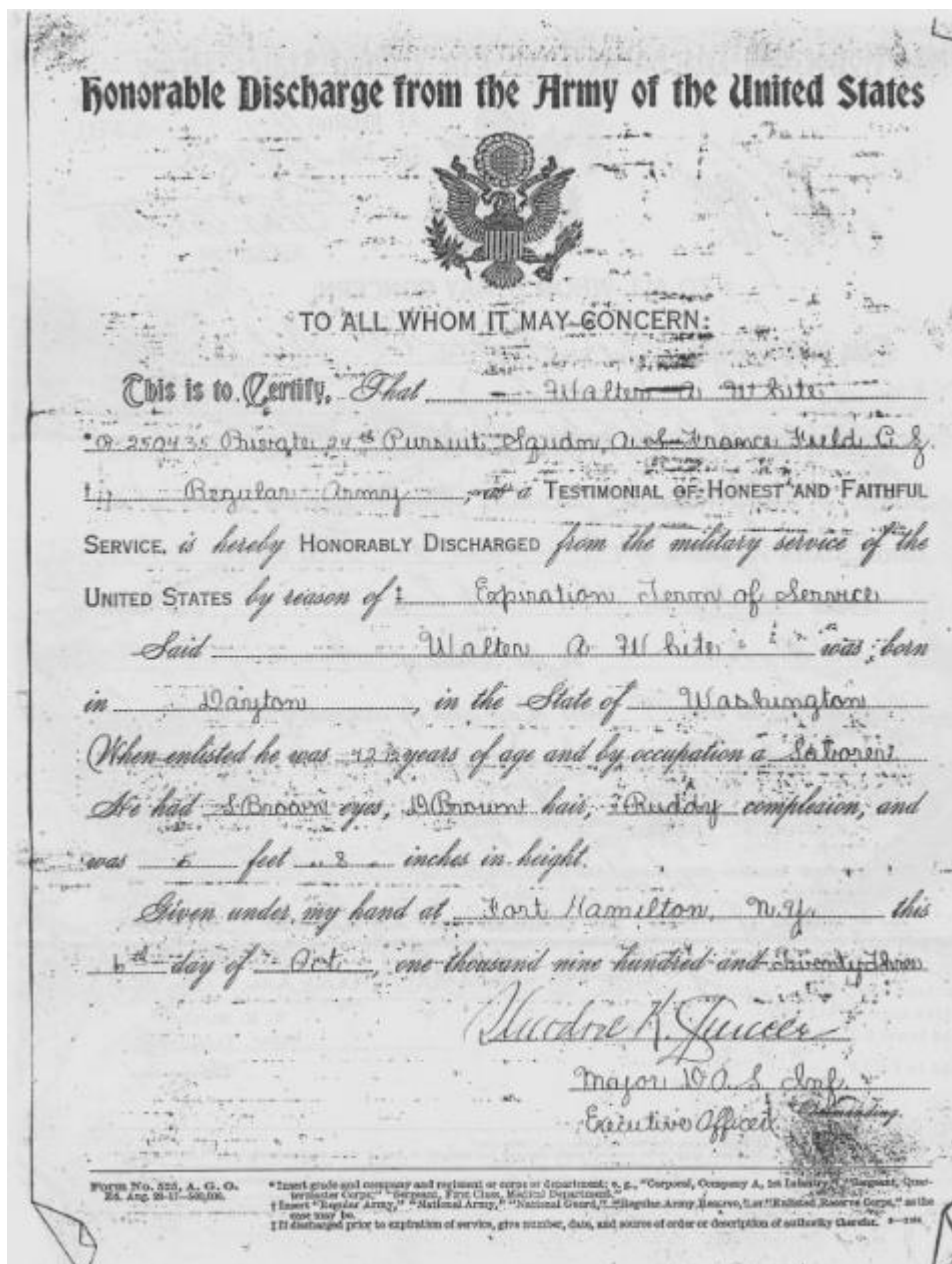 Honorable Discharge from the Army of the United States
TO ALL WHOM IT MAY CONCERN:
This is to Certify, That Walter A White
* Private 24th Pursuit Squdn, A.S. France Field C.Z.
† Regular Army, as a TESTIMONIAL OF HONEST AND FAITHFUL
SERVICE, is hereby HONORABLY DISCHARGED from the military service of the
UNITED STATES by reason of ‡ Expiration Term of Service
Said Walter A White was born
in Dayton, in the State of Washington
When enlisted he was years of age and by occupation a Laborer
He had Brown eyes, D Brown hair, Ruddy complexion, and
was feet 8 inches in height.
Given under my hand at Fort Hamilton, N.Y. this
6th day of Oct, one thousand nine hundred and Twenty Three
Theodore K. Spencer
Major D.O.L. Inf.
Executive Officer Commanding.
Form No. 525, A. G. O.
Ed. Aug. 29-17—500,000.
* Insert grade and company and regiment or corps or department; e. g., "Corporal, Company A, 1st Infantry;" "Sergeant, Quar-
termaster Corps;" "Sergeant, First Class, Medical Department."
† Insert "Regular Army," "National Army," "National Guard," "Regular Army Reserve," or "Enlisted Reserve Corps," as the
case may be.
‡ If discharged prior to expiration of service, give number, date, and source of order or description of authority therefor.